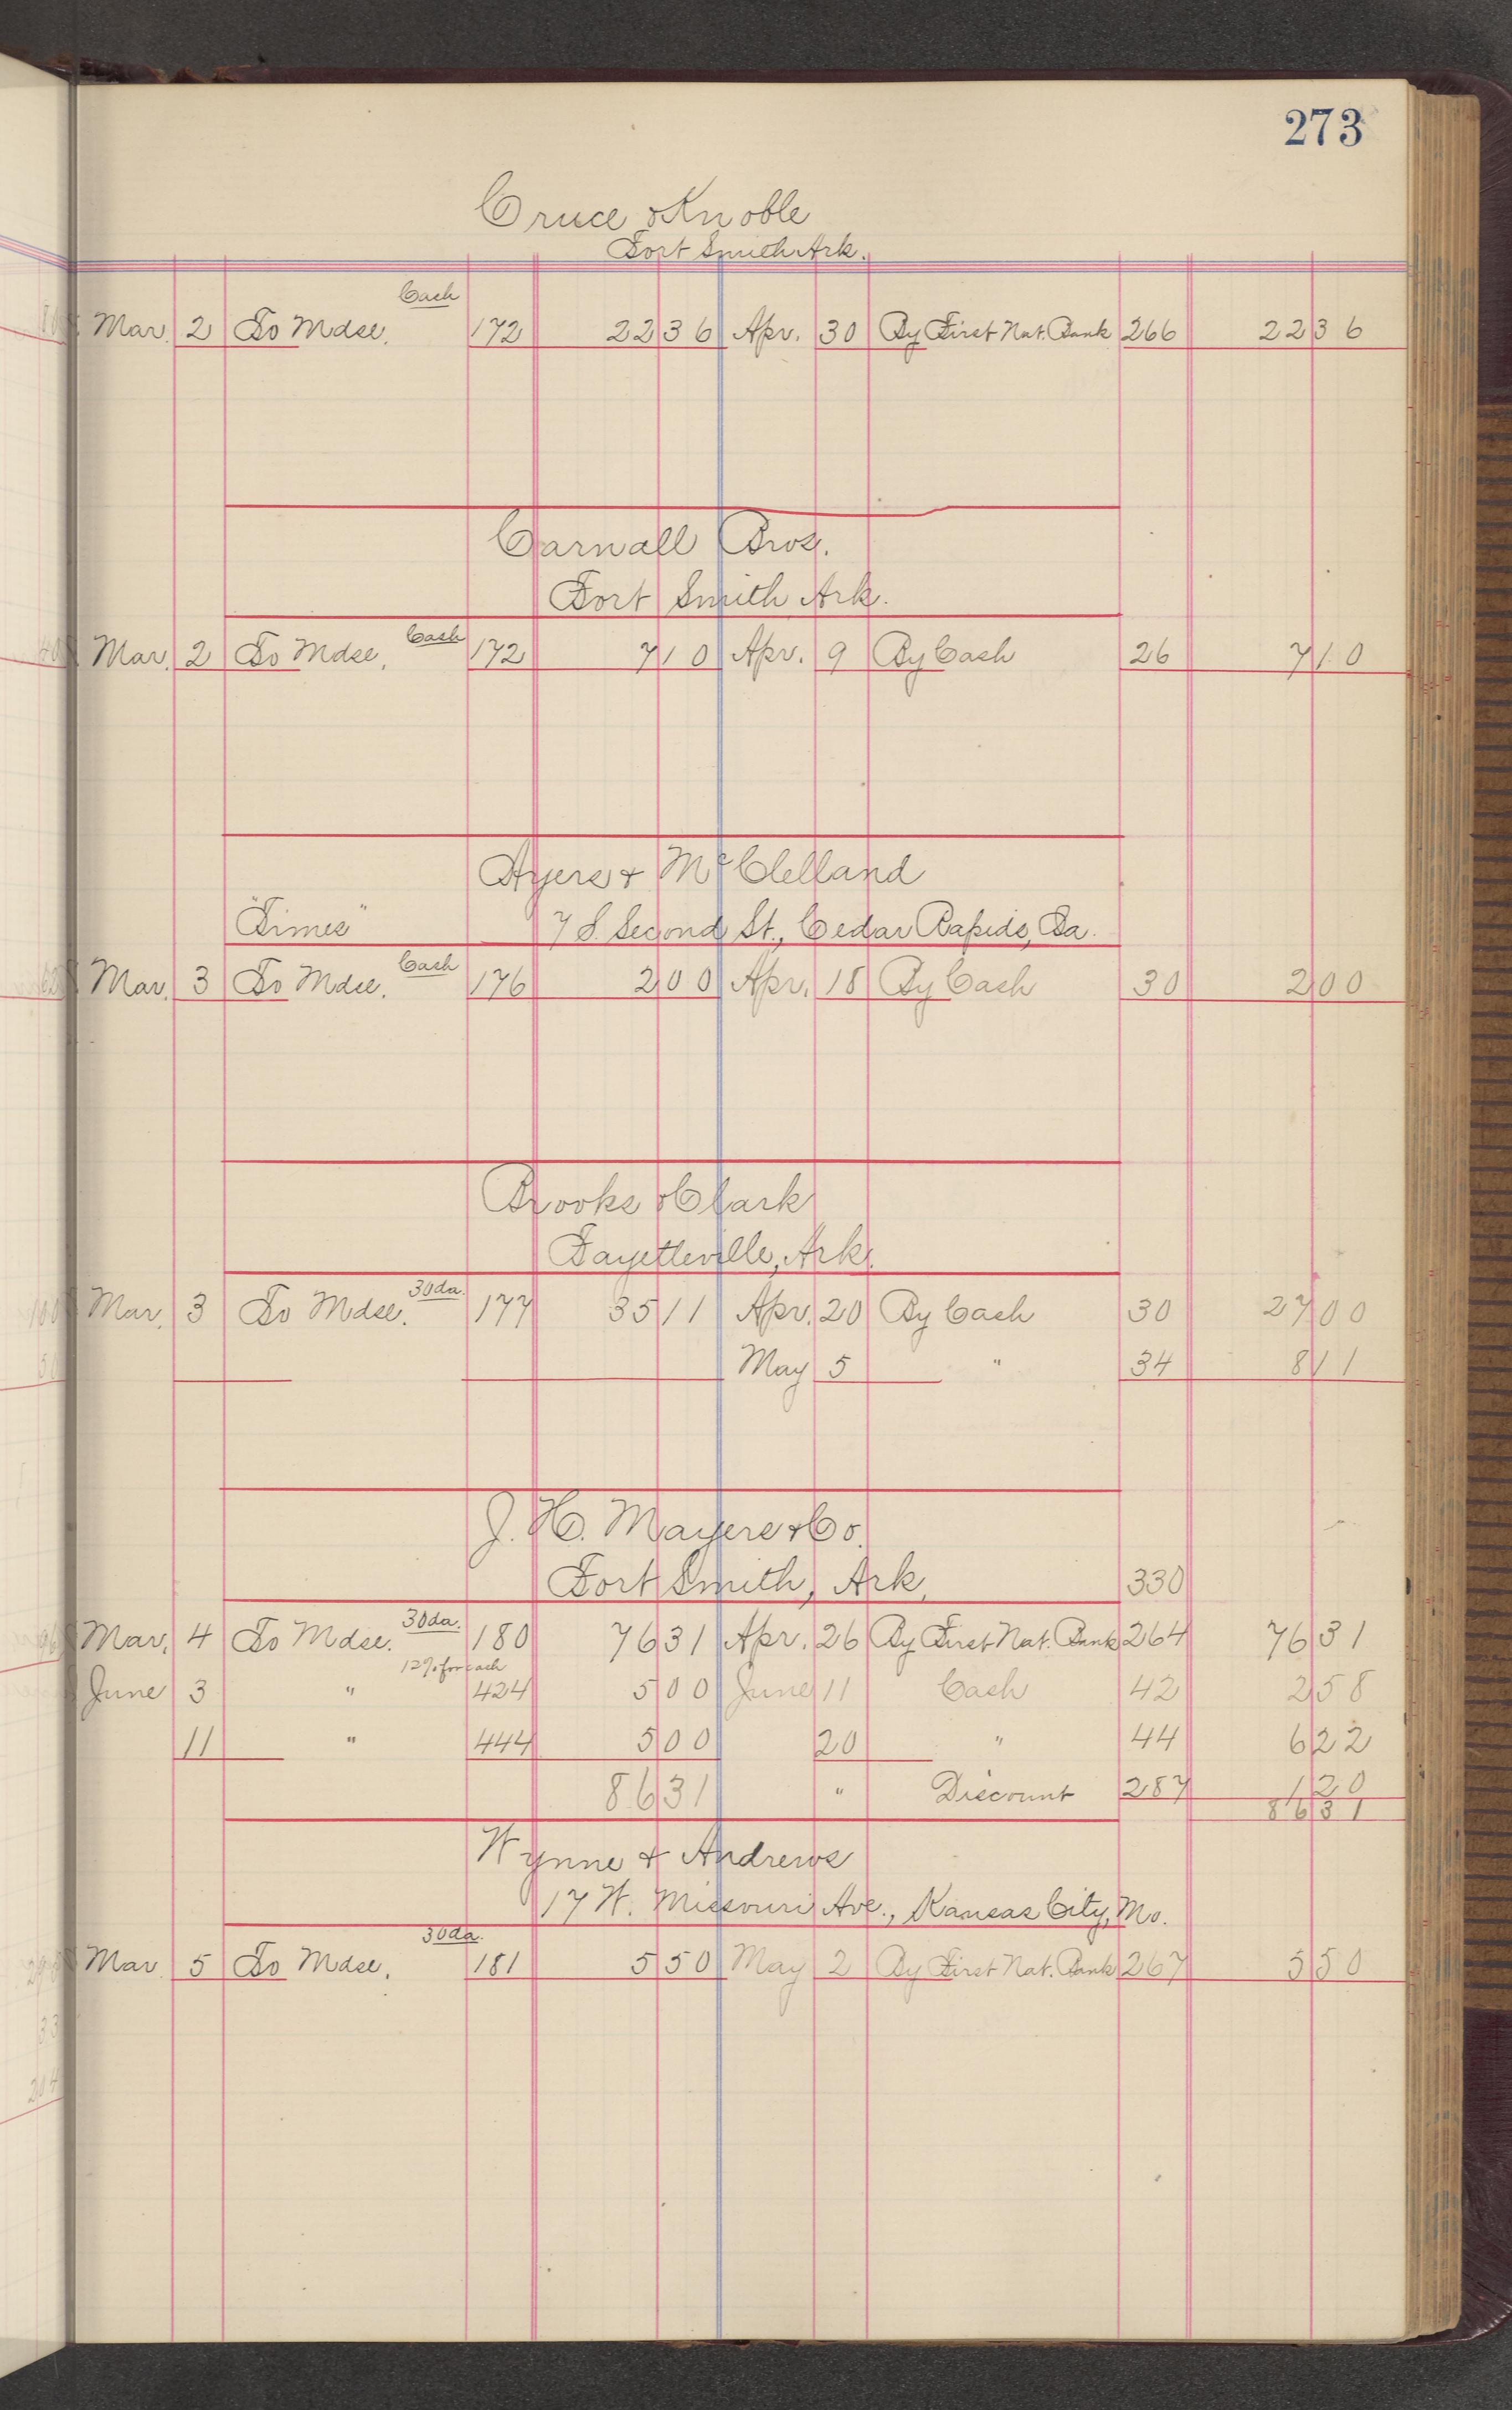 273
Cruce & Knoble
Fort Smith Ark.
Cash
Mar. 2 To Mdse. 172 22 36 Apr. 30 By First Nat. Bank 266 22 36
Carnall Bros.
Fort Smith Ark.
Cash
Mar. 2 To Mdse. 172 7 10 Apr. 9 By Cash 26 7 10
Ayers & McClelland
"Times" 7 S. Second St., Cedar Rapids, Ia.
Cash
Mar. 3 To Mdse. 176 2 00 Apr. 18 By Cash 30 2 00
Brooks & Clark
Fayetteville, Ark.
30 da.
Mar. 3 To Mdse. 177 35 11 Apr. 20 By Cash 30 27 00
May 5 " 34 8 11
J. H. Mayers & Co.
Fort Smith, Ark. 330
30 da.
Mar. 4 To Mdse. 180 76 31 Apr. 26 By First Nat. Bank 264 76 31
12% for cash
June 3 " 424 5 00 June 11 Cash 42 2 58
11 " 444 5 00 20 " 44 6 22
86 31 " Discount 287 1 20
86 31
Wynne & Andrews
17 W. Missouri Ave., Kansas City, Mo.
30 da.
Mar. 5 To Mdse. 181 5 50 May 2 By First Nat. Bank 267 5 50